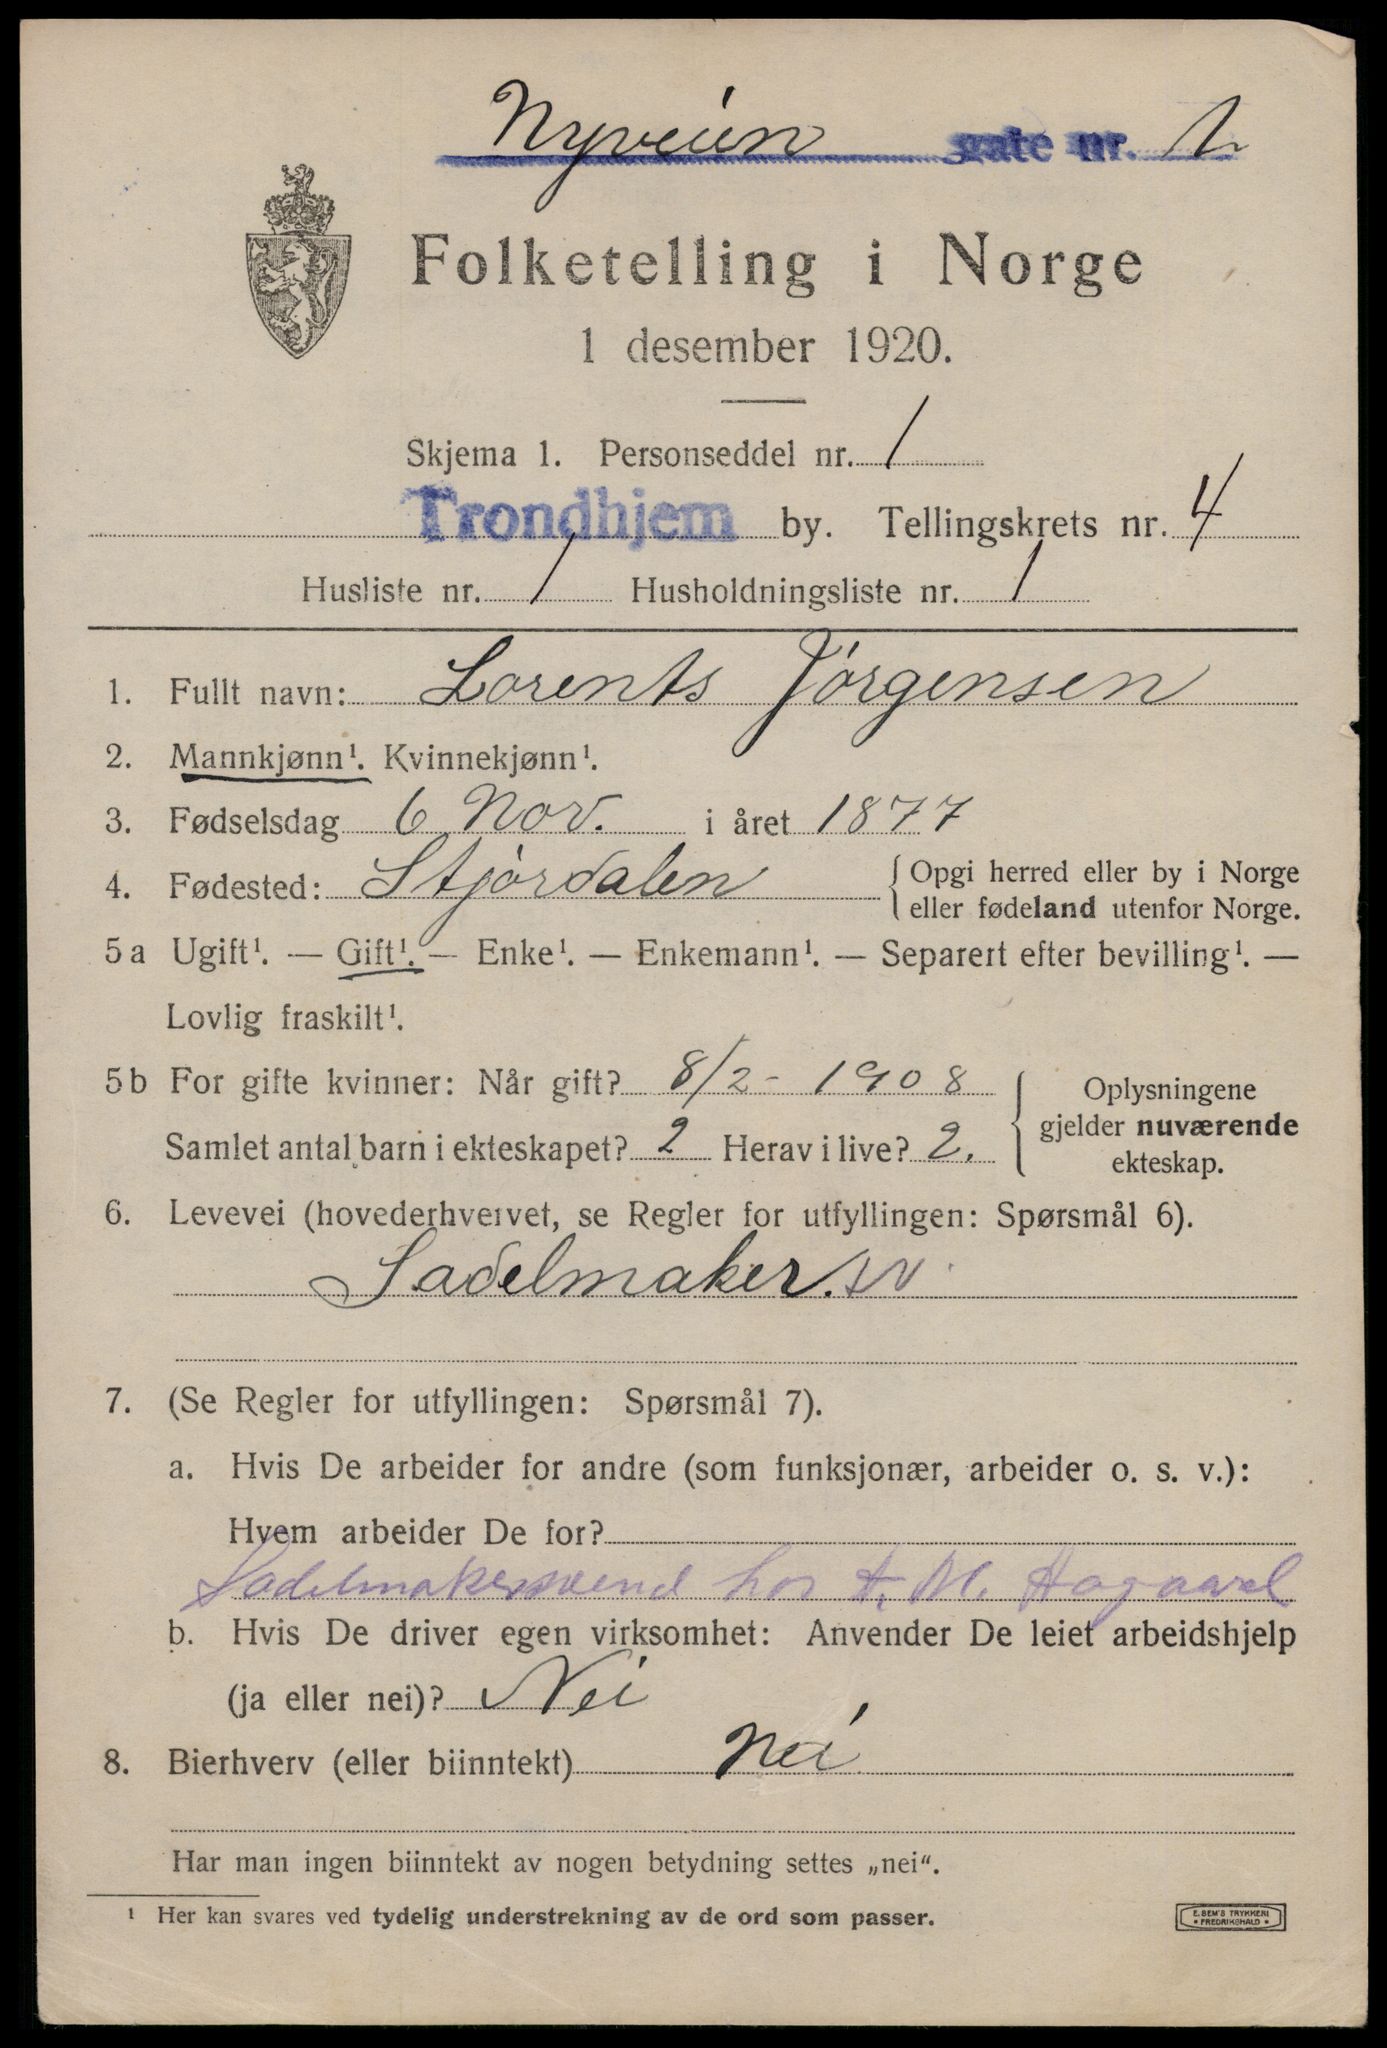 Nyveien gate nr. 1
Folketelling i Norge
1 desember 1920.
Skjema 1. Personseddel nr. 1
Trondhjem by. Tellingskrets nr. 4
Husliste nr. 1 Husholdningsliste nr. 1
1. Fullt navn: Lorents Jørgensen
2. Mannkjønn¹. Kvinnekjønn¹.
3. Fødselsdag 6 Nov. i året 1877
4. Fødested: Stjørdalen { Opgi herred eller by i Norge
eller fødeland utenfor Norge.
5a Ugift¹. — Gift¹. — Enke¹. — Enkemann¹. — Separert efter bevilling¹. —
Lovlig fraskilt¹.
5b For gifte kvinner: Når gift? 8/2 - 1908
Samlet antal barn i ekteskapet? 2 Herav i live? 2.
Oplysningene
gjelder nuværende
ekteskap.
6. Levevei (hovederhvervet, se Regler for utfyllingen: Spørsmål 6).
Sadelmaker. sv.
7. (Se Regler for utfyllingen: Spørsmål 7).
a. Hvis De arbeider for andre (som funksjonær, arbeider o. s. v.):
Hvem arbeider De for?
Sadelmakersvend hos A. M. Hagaard
b. Hvis De driver egen virksomhet: Anvender De leiet arbeidshjelp
(ja eller nei)? Nei
8. Bierhverv (eller biinntekt) Nei
Har man ingen biinntekt av nogen betydning settes „nei“.
¹ Her kan svares ved tydelig understrekning av de ord som passer.
E. SEM'S TRYKKERI
• FREDRIKSHALD •